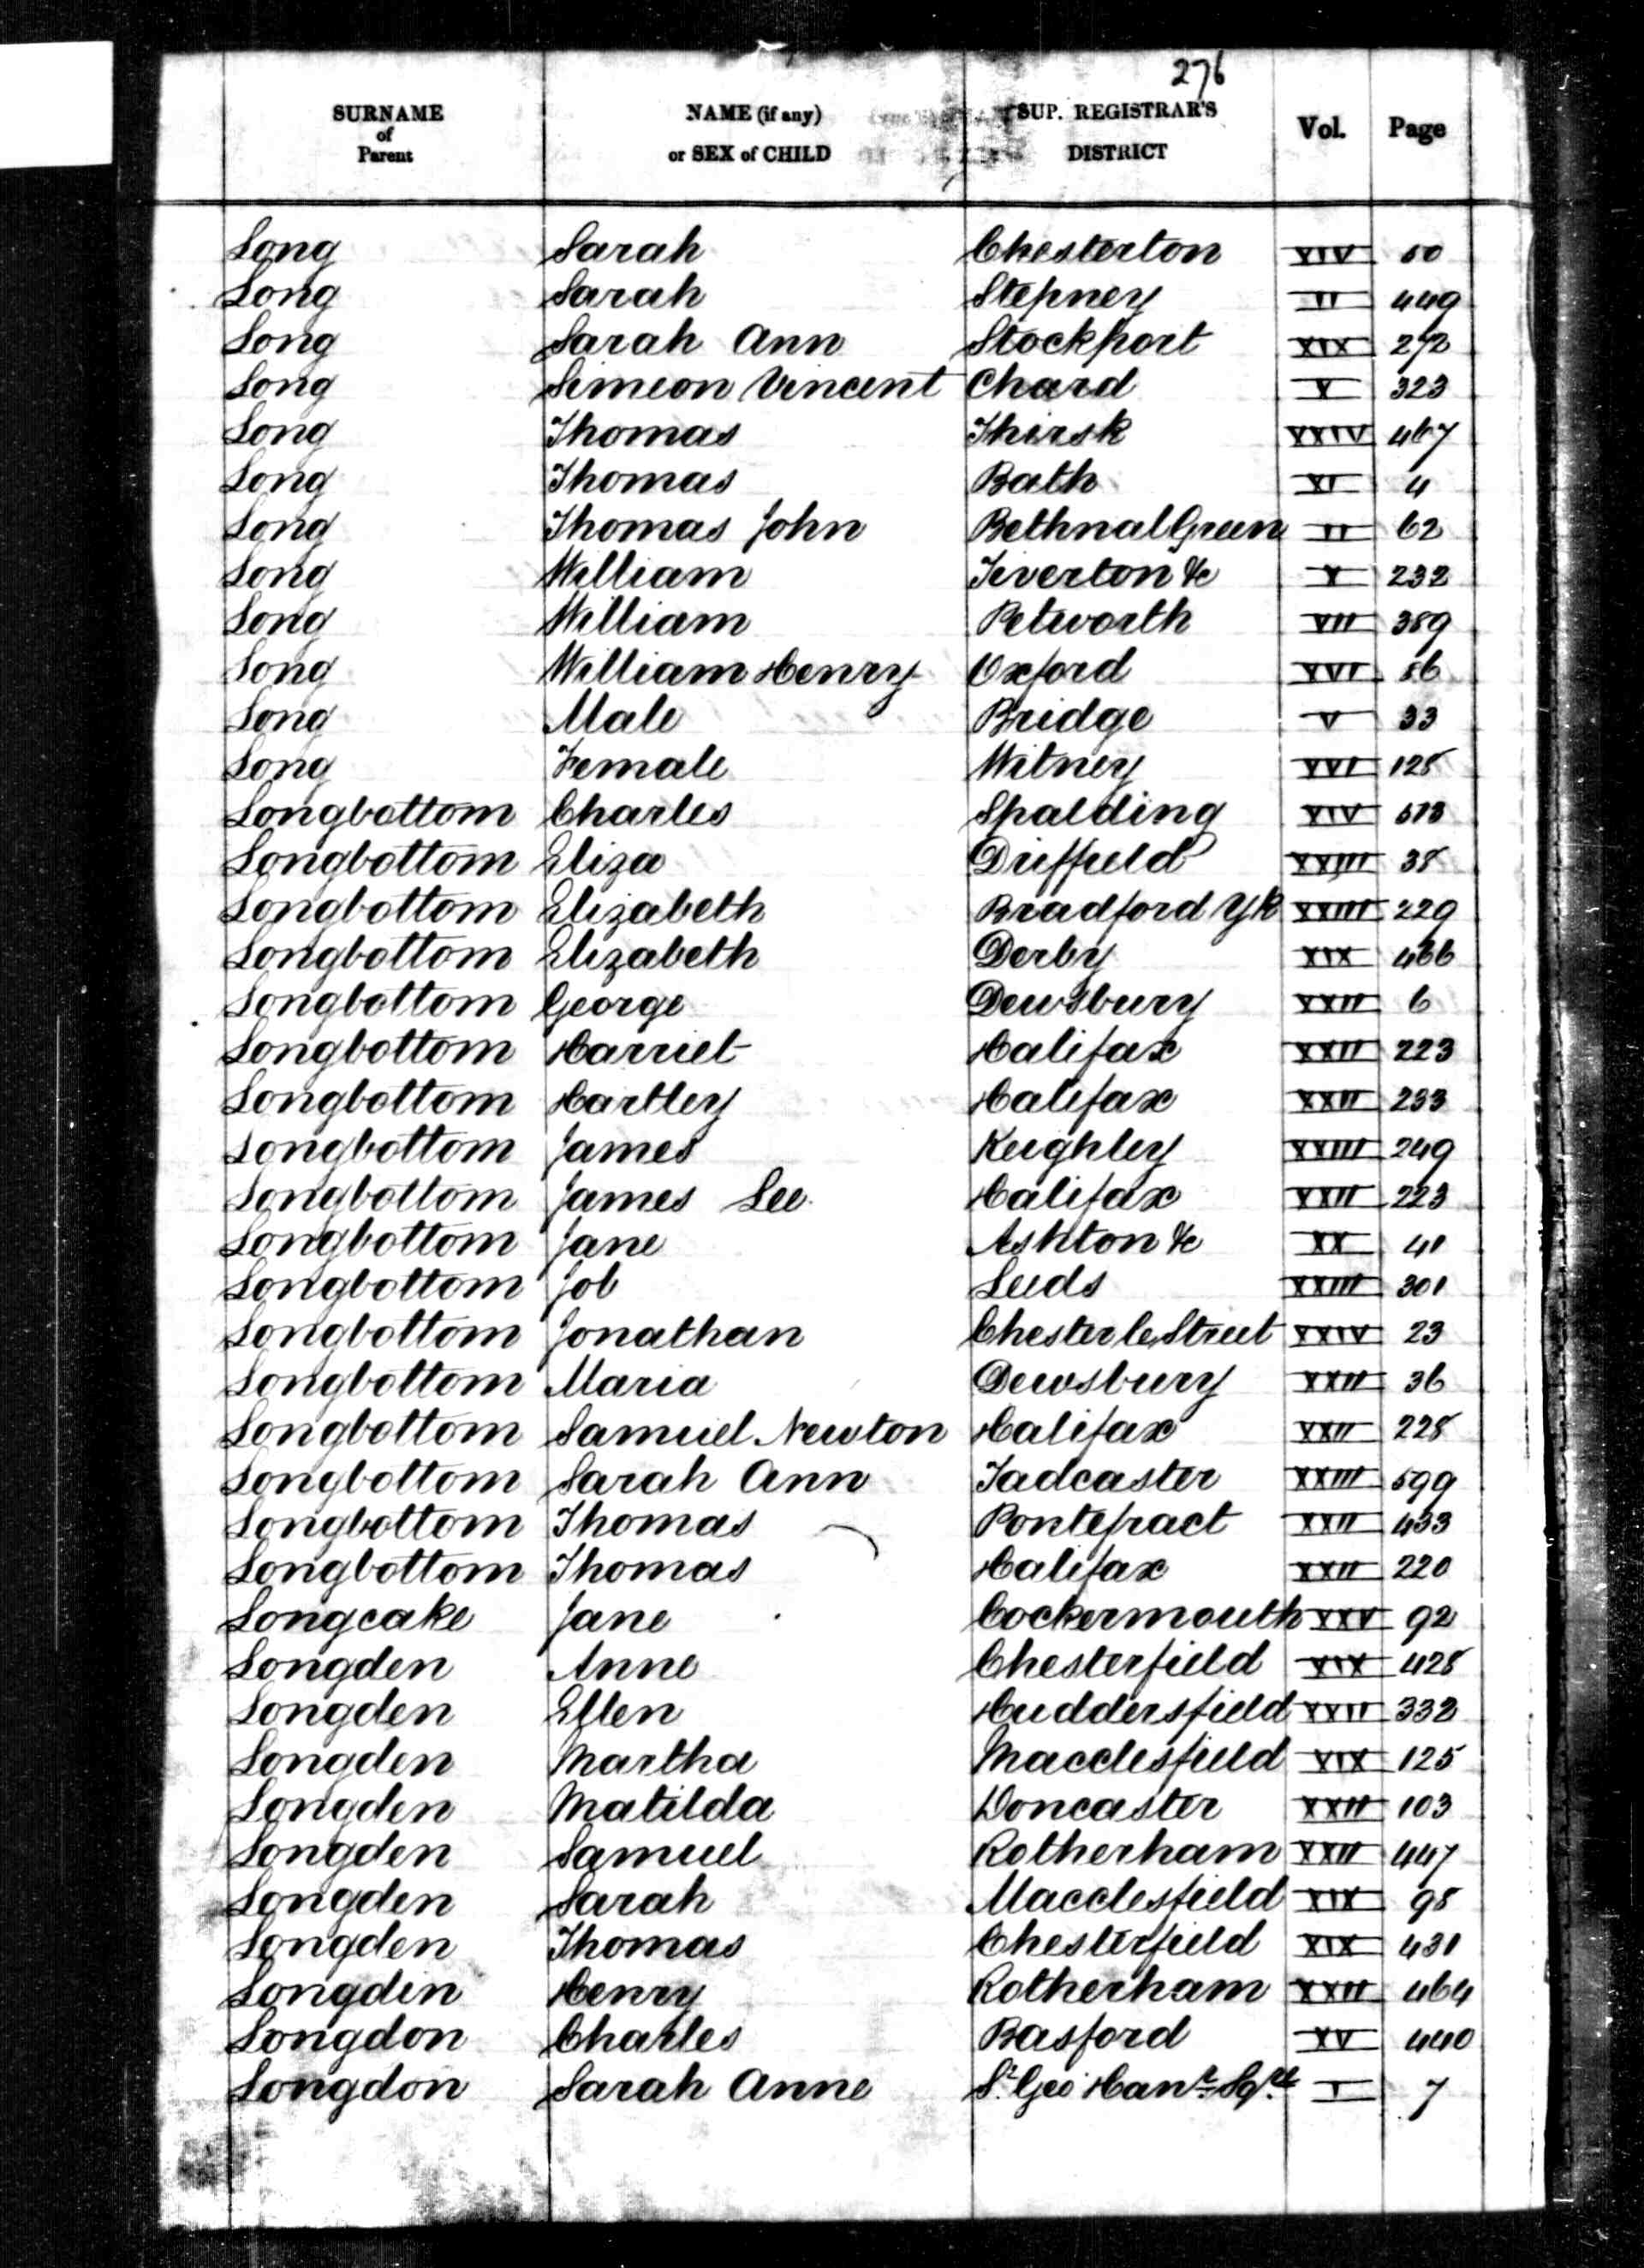 276
SURNAME of Parent NAME (if any) or SEX of CHILD SUP. REGISTRAR'S DISTRICT Vol. Page
Long Sarah Chesterton XIV 50
Long Sarah Stepney II 449
Long Sarah Ann Stockport XIX 272
Long Simeon Vincent Chard X 323
Long Thomas Thirsk XXIV 467
Long Thomas Bath XI 4
Long Thomas John Bethnal Green II 62
Long William Tiverton &c X 232
Long William Petworth VII 389
Long William Henry Oxford XVI 86
Long Male Bridge V 33
Long Female Witney XVI 128
Longbottom Charles Spalding XIV 573
Longbottom Eliza Driffield XXIII 38
Longbottom Elizabeth Bradford Yk XXIII 229
Longbottom Elizabeth Derby XIX 466
Longbottom George Dewsbury XXII 6
Longbottom Harriet Halifax XXII 223
Longbottom Hartley Halifax XXII 233
Longbottom James Keighley XXIII 249
Longbottom James Lee Halifax XXII 223
Longbottom Jane Ashton &c XX 41
Longbottom Job Leeds XXIII 301
Longbottom Jonathan Chester le Street XXIV 23
Longbottom Maria Dewsbury XXII 36
Longbottom Samuel Newton Halifax XXII 228
Longbottom Sarah Ann Tadcaster XXIII 599
Longbottom Thomas Pontefract XXII 433
Longbottom Thomas Halifax XXII 220
Longcake Jane Cockermouth XXV 92
Longden Anne Chesterfield XIX 428
Longden Ellen Huddersfield XXII 332
Longden Martha Macclesfield XIX 125
Longden Matilda Doncaster XXII 103
Longden Samuel Rotherham XXII 447
Longden Sarah Macclesfield XIX 98
Longden Thomas Chesterfield XIX 431
Longdin Henry Rotherham XXII 464
Longdon Charles Basford XV 440
Longdon Sarah Anne St. Geo Hanr. Sqre I 7